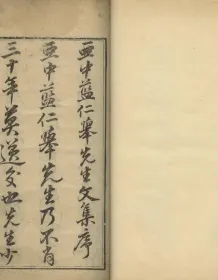 亜中藍仁臯先生文集序
亜中藍仁臯先生乃不肖
三十年莫逆交也先生少